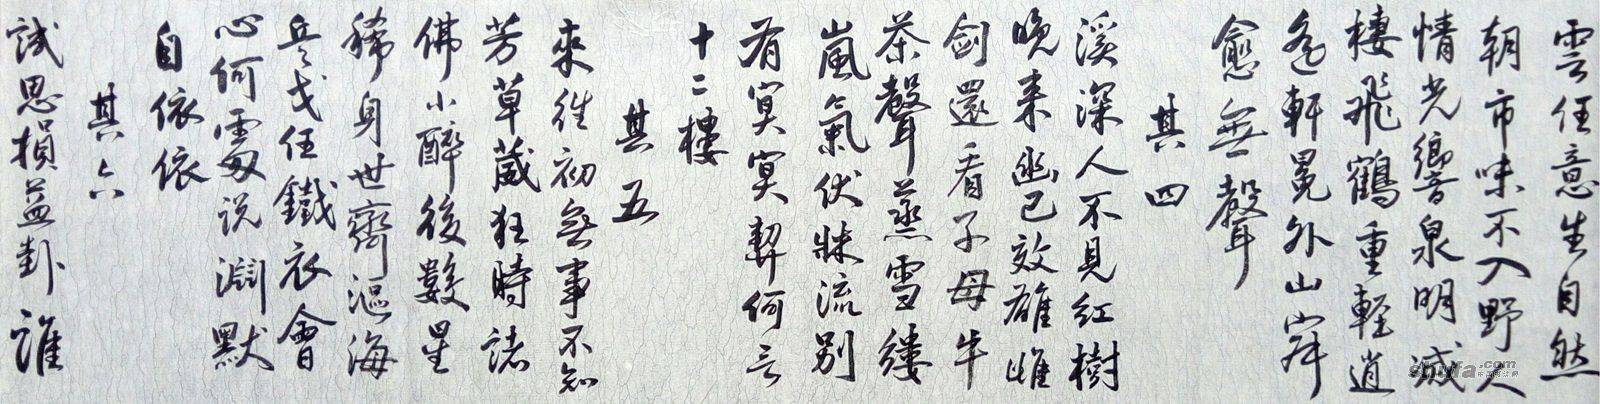 雲任意生自然
朝市味不入野人
情光響泉明滅
樓飛鶴重輕逍
遙軒冕外山岸
愈無聲
其四
溪深人不見紅樹
晚来幽已效雄雌
劍還看子母牛
茶聲蒸雪縷
嵐氣伏牀流别
有冥冥契何言
十二樓
其五
來往初無事不知
芳草葳狂時諸
佛小醉後數星
稀身世齊漚海
兵戈任鐵衣會
心何說淵默
自依依
其六
試思損益卦誰
shufa.com